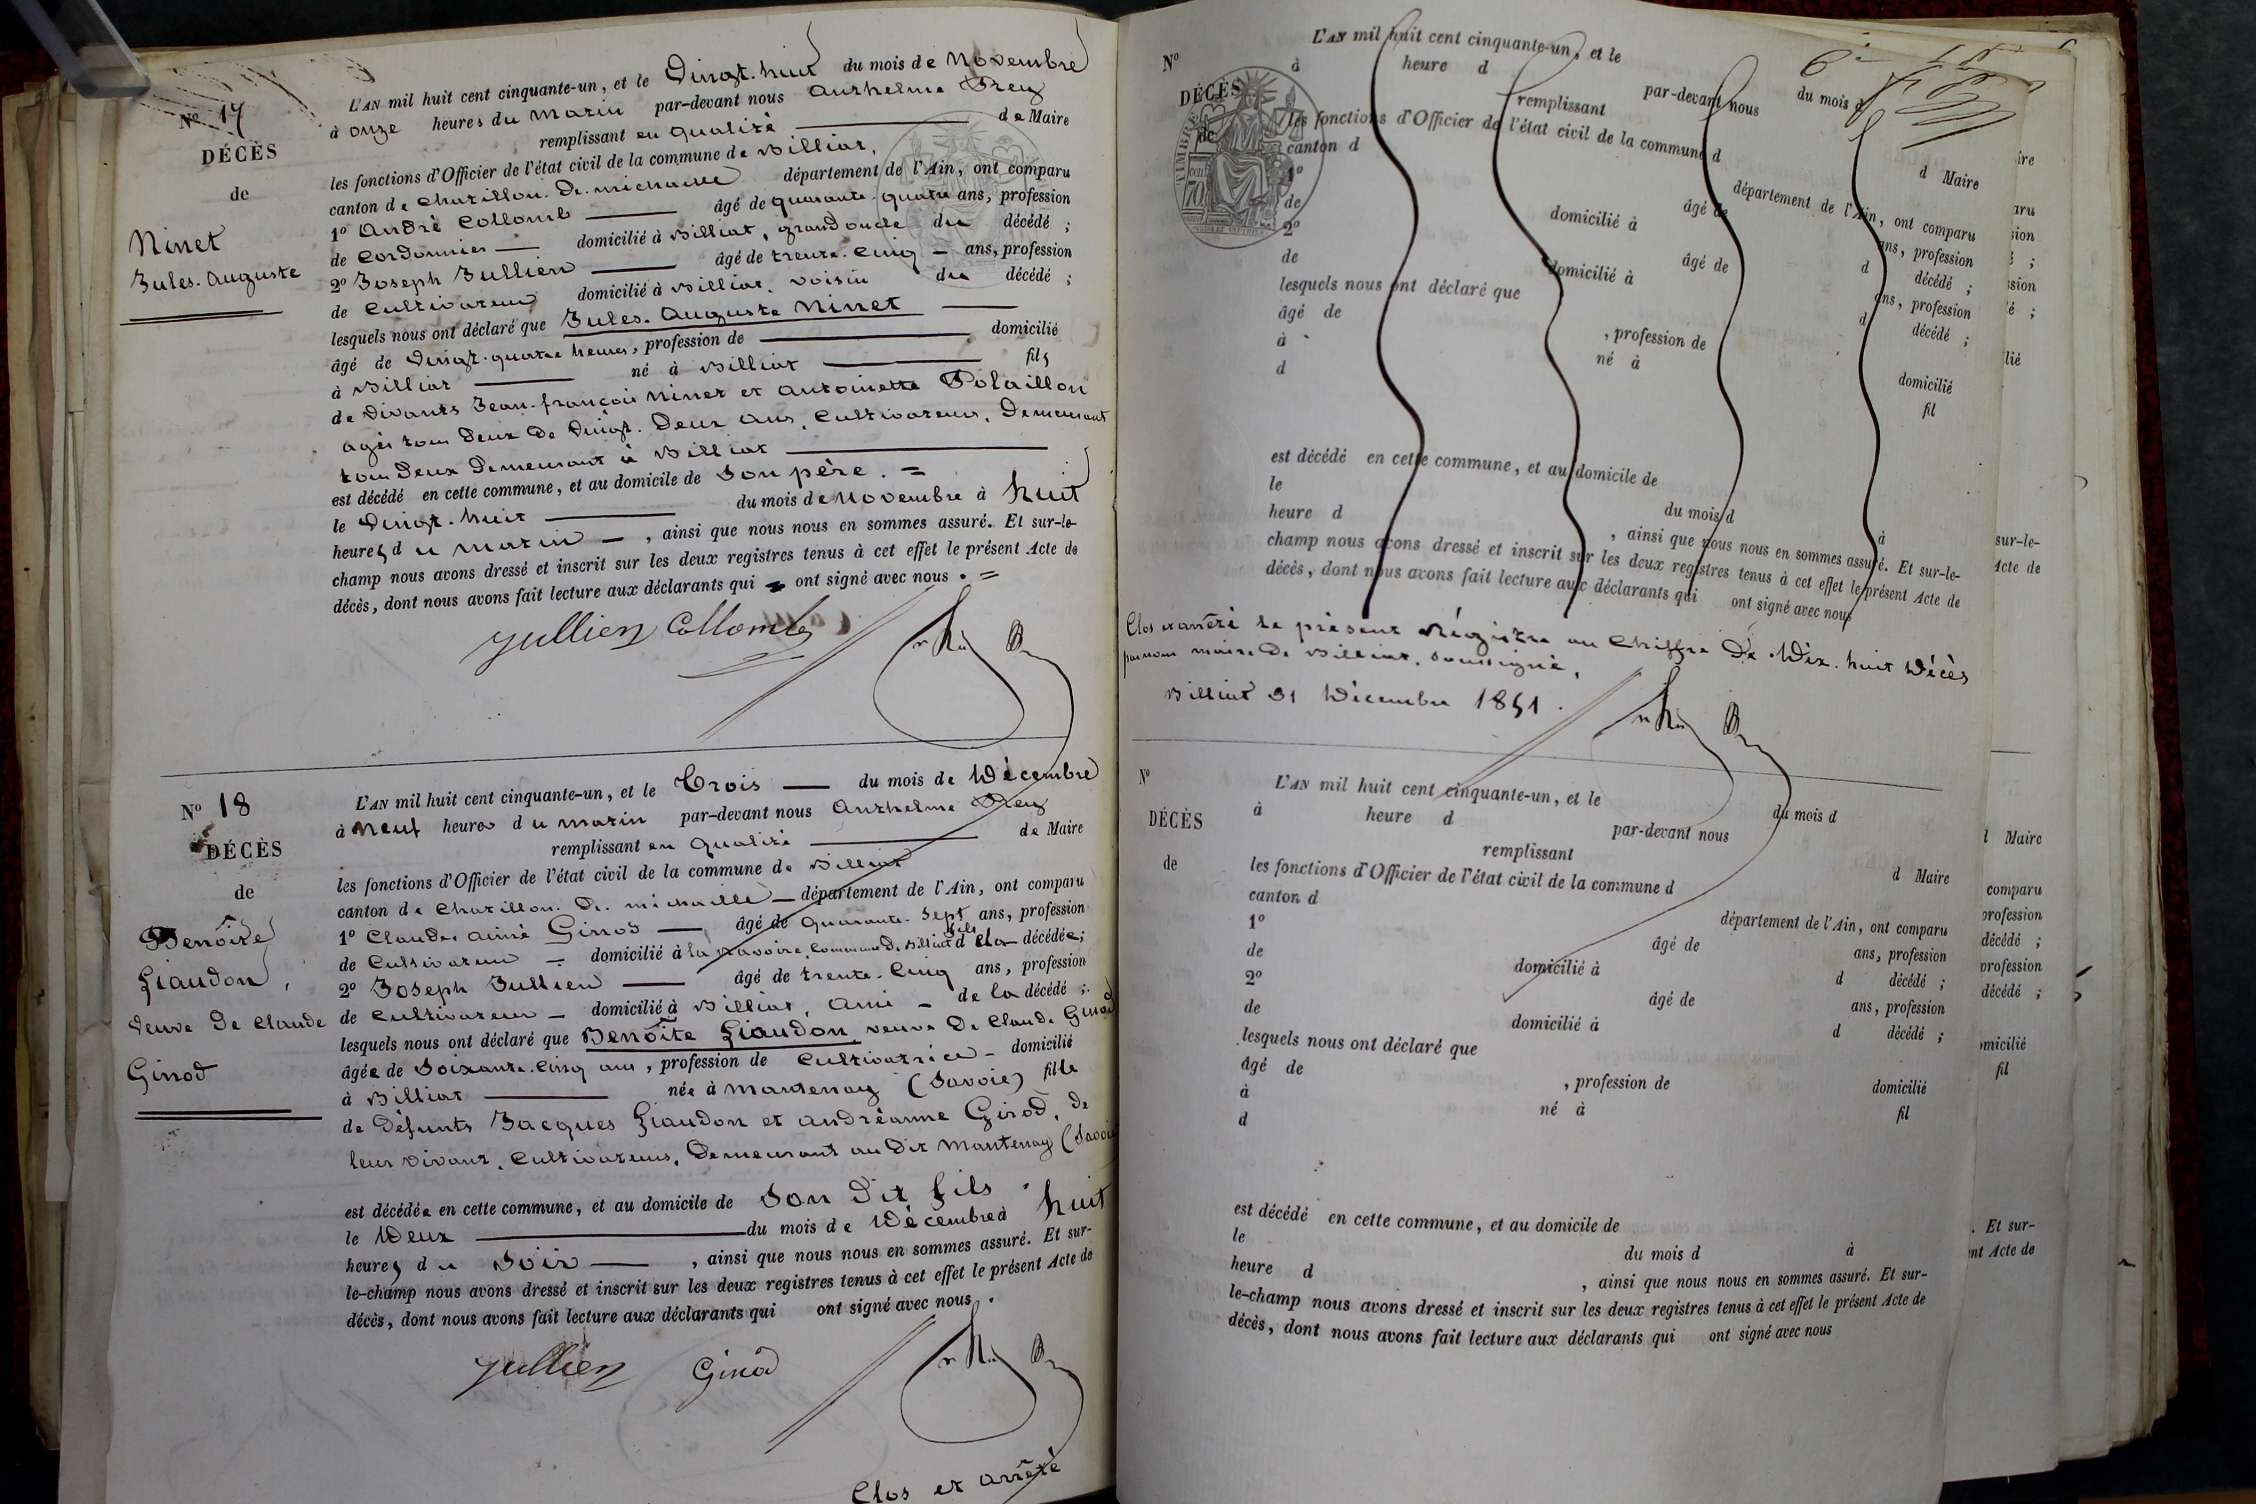 Nº 17
DÉCÈS
de
Ninet
Jules. Auguste
L'AN mil huit cent cinquante-un, et le Vingt. huit du mois de Novembre
à onze heures du matin par-devant nous Anthelme Prey
remplissant en qualité de Maire
les fonctions d'Officier de l'état civil de la commune de Billiat,
canton de Chatillon. De. michaille département de l'Ain, ont comparu
1º André Collomb âgé de quarante. quatre ans, profession
de Cordonnier domicilié à Billiat, grand oncle du décédé ;
2º Joseph Jullien âgé de trente. Cinq ans, profession
de Cultivateur domicilié à Billiat, voisin du décédé ;
lesquels nous ont déclaré que Jules. Auguste Ninet
âgé de Vingt. quatre heures, profession de domicilié
à Billiat né à Billiat fils
de Vivants Jean. françois Ninet et Antoinette Polaillon
agés tous Deux De Vingt. Deux ans, Cultivateurs, Demeurant
tous Deux Demeurant à Billiat
est décédé en cette commune, et au domicile de Son père. =
le Vingt. huit du mois de Novembre à huit
heures du matin , ainsi que nous nous en sommes assuré. Et sur-le-
champ nous avons dressé et inscrit sur les deux registres tenus à cet effet le présent Acte de
décès, dont nous avons fait lecture aux déclarants qui ont signé avec nous . =
Jullien Collomb
Nº 18
DÉCÈS
de
Benôite
Liaudon,
Veuve De Claude
Girod
L'AN mil huit cent cinquante-un, et le Trois du mois de Décembre
à Neuf heures du matin par-devant nous Anthelme Prey
remplissant en qualité de Maire
les fonctions d'Officier de l'état civil de la commune de Billiat
canton de Chatillon. De. michaille département de l'Ain, ont comparu
1º Claude. aimé Girod âgé de quarante. Sept ans, profession
de Cultivateur domicilié à la navoire, Commune De Billiat fils de la décédée ;
2º Joseph Jullien âgé de trente. Cinq ans, profession
de Cultivateur domicilié à Billiat, Ami de la décédé ;
lesquels nous ont déclaré que Benôite Liaudon veuve De Claude Girod
âgée de Soixante. Cinq ans, profession de Cultivatrice domicilié
à Billiat née à Mantenay (Savoie) fille
de Défunts Jacques Liaudon et andréanne Girod, de
leur vivant, Cultivateurs, Demeurant au Dit Mantenay (Savoie
est décédée en cette commune, et au domicile de Son Dit fils
le Deux du mois de Décembre à huit
heures du Soir , ainsi que nous nous en sommes assuré. Et sur-
le-champ nous avons dressé et inscrit sur les deux registres tenus à cet effet le présent Acte de
décès, dont nous avons fait lecture aux déclarants qui ont signé avec nous .
Jullien Girod
Clos et arrêté
Nº
DÉCÈS
de
TIMBRE
70
L'AN mil huit cent cinquante-un, et le
à heure d par-devant nous du mois d
remplissant d Maire
les fonctions d'Officier de l'état civil de la commune d
canton d département de l'Ain, ont comparu
1º âgé de ans, profession
de domicilié à d décédé ;
2º âgé de ans, profession
de domicilié à d décédé ;
lesquels nous ont déclaré que
âgé de , profession de domicilié
à né à fil
d
est décédé en cette commune, et au domicile de
le du mois d à
heure d , ainsi que nous nous en sommes assuré. Et sur-le-
champ nous avons dressé et inscrit sur les deux registres tenus à cet effet le présent Acte de
décès, dont nous avons fait lecture aux déclarants qui ont signé avec nous
Clos et arrêté le présent Régistre au Chiffre De Dix. huit Décès
par nous maire De Billiat, Soussigné,
Billiat 31 Décembre 1851.
Nº
DÉCÈS
de
L'AN mil huit cent cinquante-un, et le du mois d
à heure d par-devant nous
remplissant d Maire
les fonctions d'Officier de l'état civil de la commune d
canton d département de l'Ain, ont comparu
1º âgé de ans, profession
de domicilié à d décédé ;
2º âgé de ans, profession
de domicilié à d décédé ;
lesquels nous ont déclaré que
âgé de , profession de domicilié
à né à fil
d
est décédé en cette commune, et au domicile de
le du mois d à
heure d , ainsi que nous nous en sommes assuré. Et sur-
le-champ nous avons dressé et inscrit sur les deux registres tenus à cet effet le présent Acte de
décès, dont nous avons fait lecture aux déclarants qui ont signé avec nous
sur-le-
Acte de
Maire
comparu
profession
décédé ;
profession
décédé ;
fil
. Et sur-
Acte de